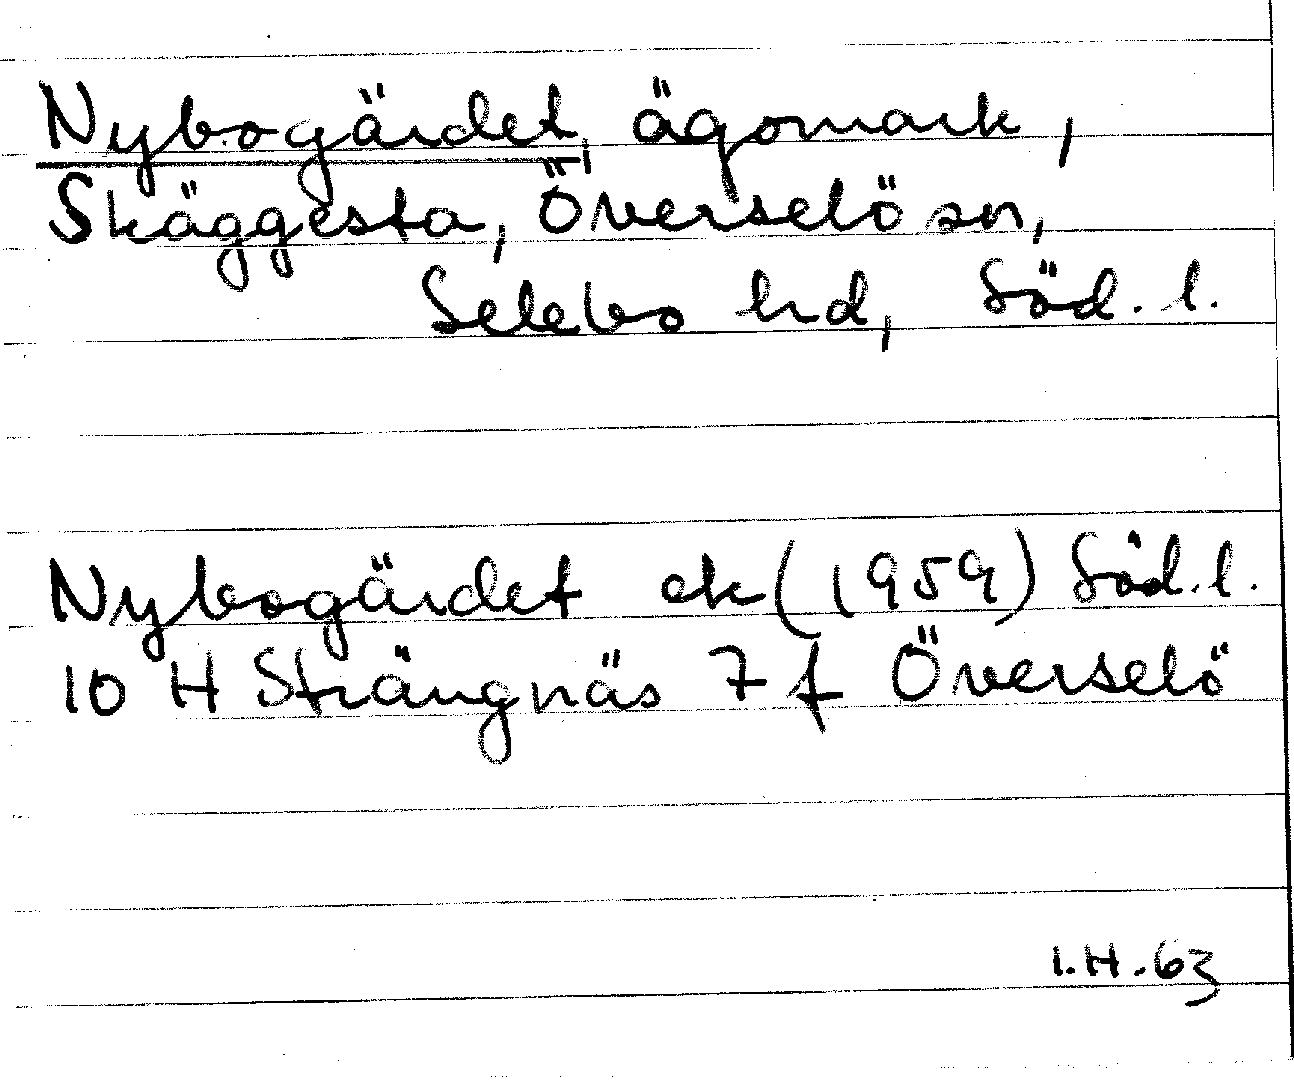 Nybogärdet, ägomark,
Skäggesta, Överselö sn,
Selebo hd, Söd. l.
Nybogärdet ek (1959) Söd. l.
10 H Strängnäs 7 f Överselö
I. H. 63